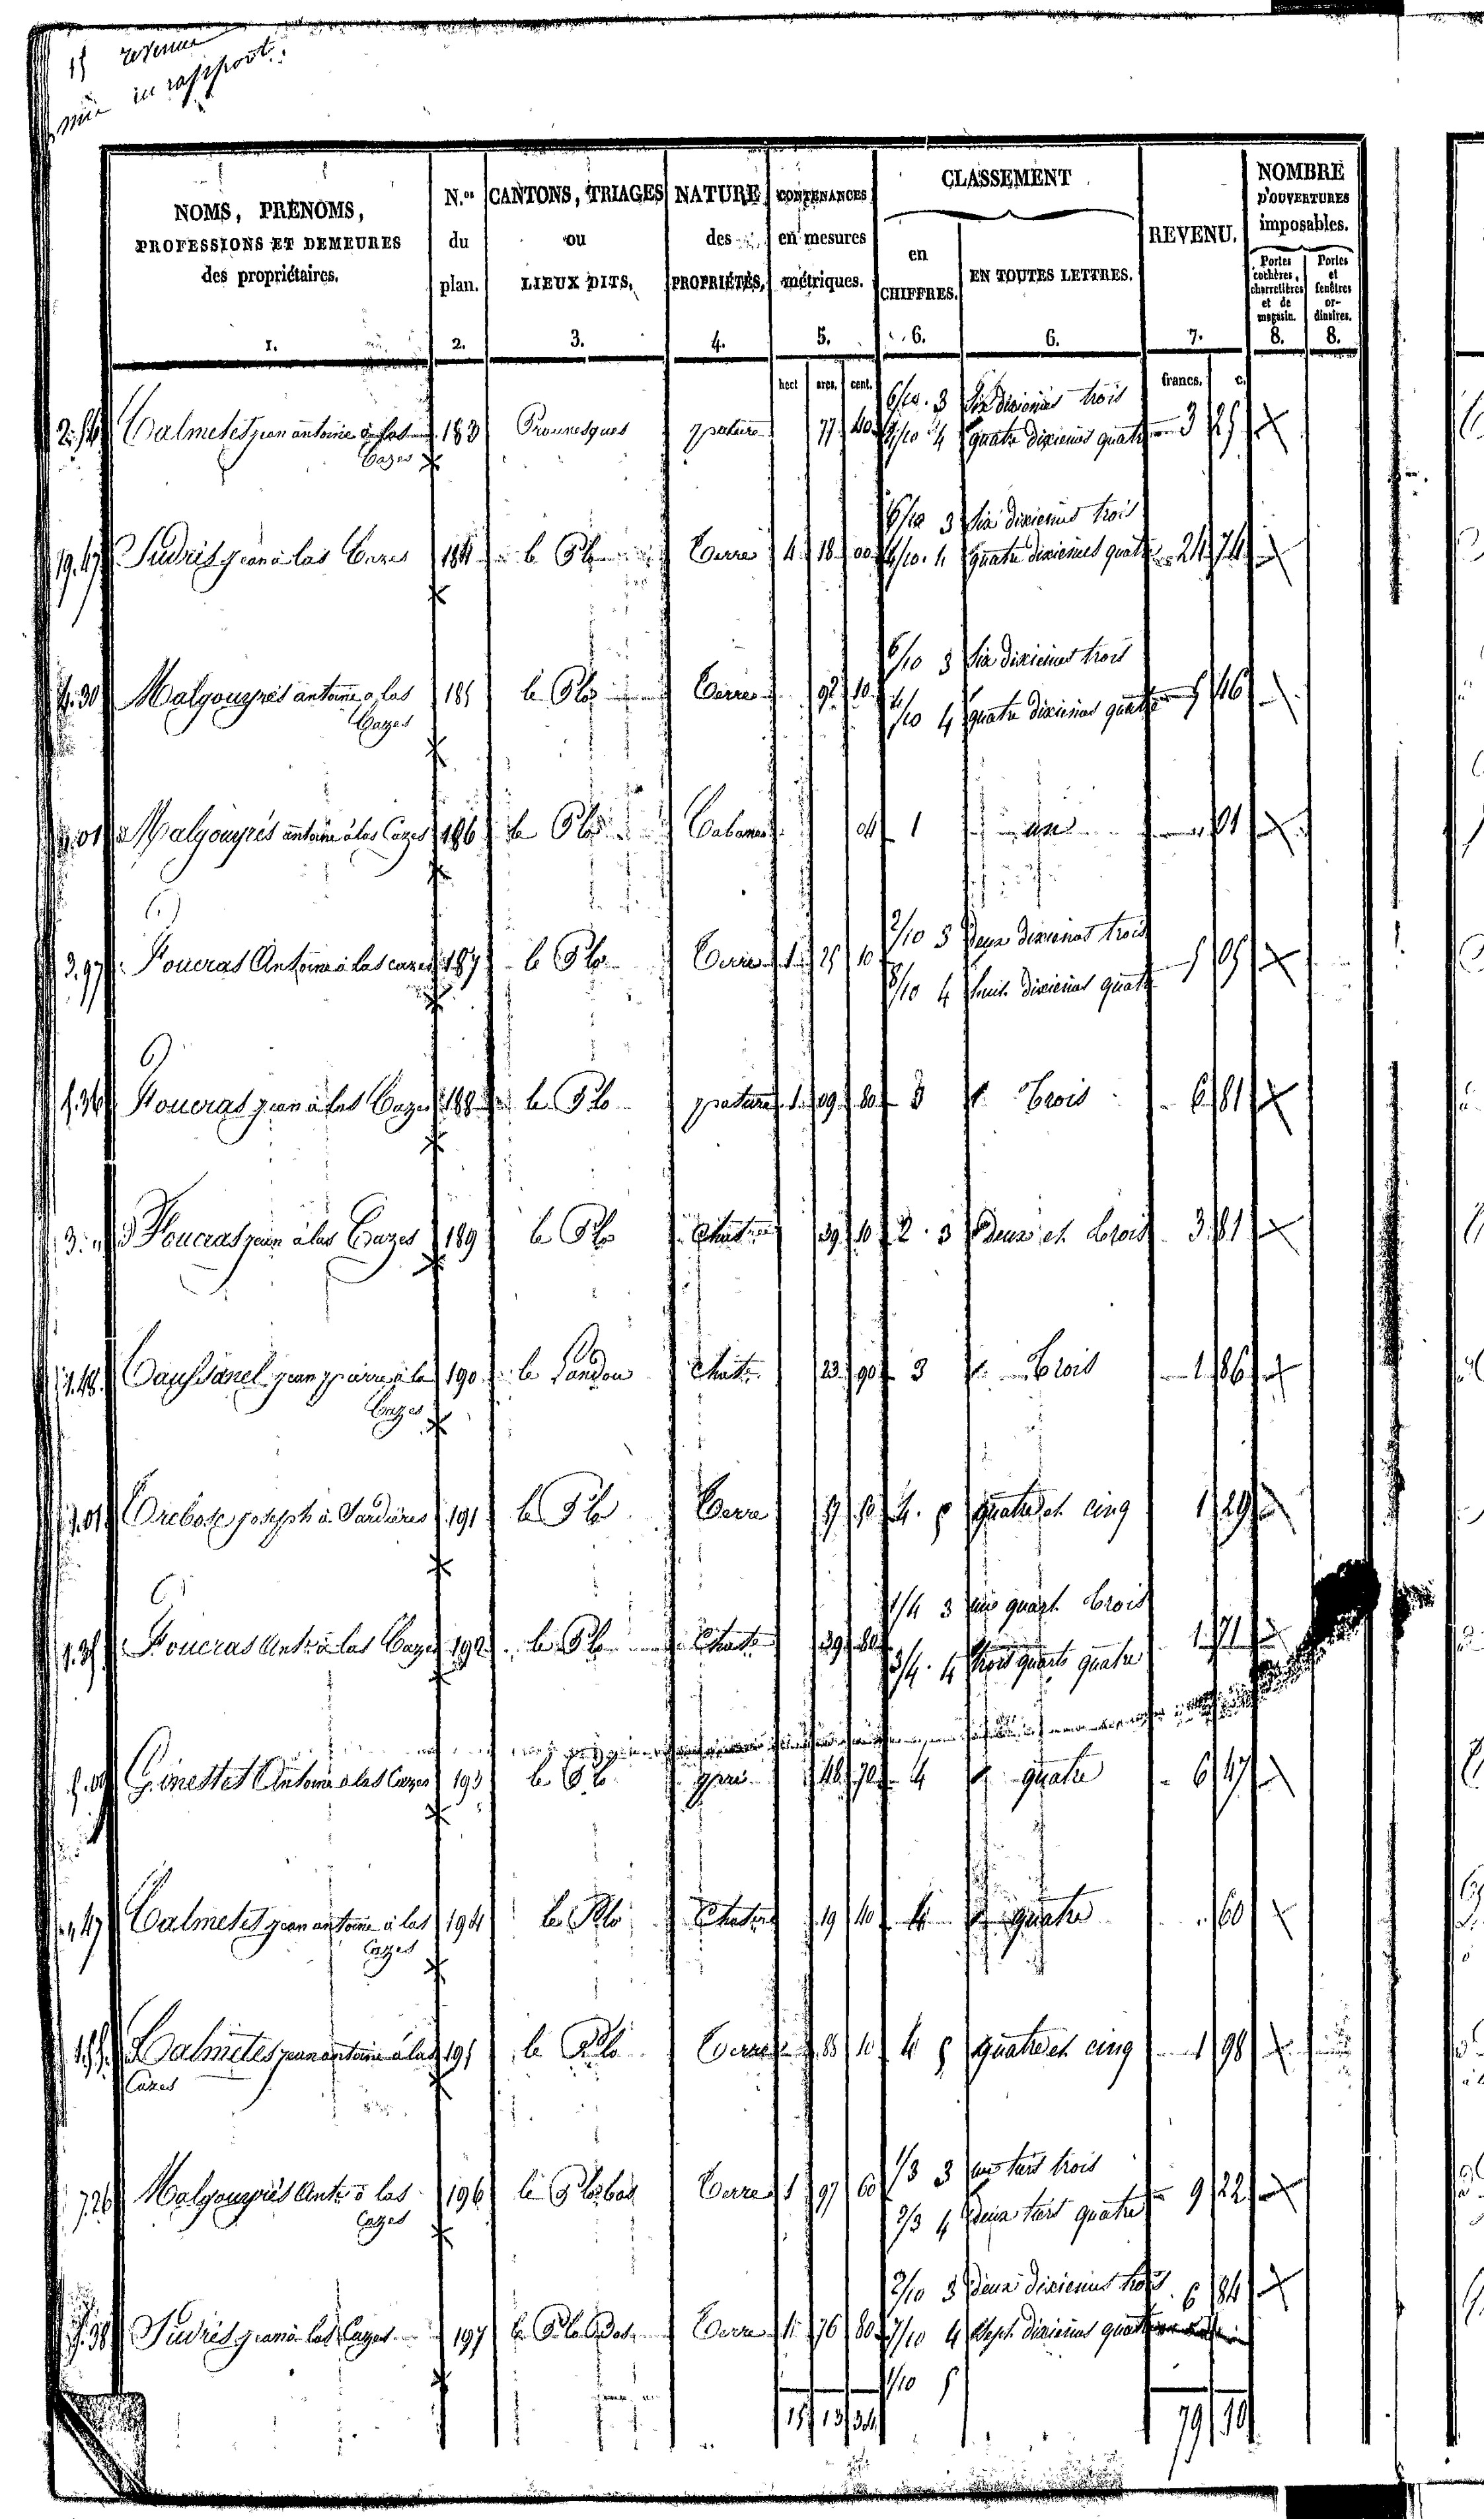 15 revenu
mis en rapport.
NOMS, PRÉNOMS,
PROFESSIONS ET DEMEURES
des propriétaires.
1.
N.os
du
plan.
2.
CANTONS, TRIAGES
ou
LIEUX DITS,
3.
NATURE
des
PROPRIÉTÉS,
4.
CONTENANCES
en mesures
métriques.
5.
CLASSEMENT
en
CHIFFRES.
6.
EN TOUTES LETTRES.
6.
REVENU.
7.
NOMBRE
D'OUVERTURES
imposables.
Portes
cochères,
charretières
et de
magasin.
8.
Portes
et
fenêtres
or-
dinaires.
8.
hect ares. cent. francs. c.
6/10. 3 Six dixiemes trois
Calmetes jean antoine à las 183 Prounesques pature 77 40 4/10 4 quatre dixiemes quatre 3 25
Cazes
6/10 3 Six dixiemes trois
19.47 Sudres jean à las Cazes 184 le Plo Terre 4 18 00 4/10. 4 quatre dixiemes quatre 24 74
6/10 3 Six dixiemes trois
4.30 Malgouyrés antoine a las 185 le Plo Terre 92 10 5 46
Cazes
4/10 4 quatre dixiemes quatre
Malgouyrés antoine à las Cazes 186 le Plo Cabane 04 1 un 01
2/10 3 Deux dixiemes trois
3.97 Foucras Antoine à las cazes 187 le Plo Terre 1 25 10 5 05
8/10 4 huit dixiemes quatre
5.36 Foucras jean à las Cazes 188 le Plo pature 1 09 80 3 Trois 6 81
3. Foucras jean à las Cazes 189 le Plo Chat 39 10 2. 3 Deux et trois 3 81
1.48 Daussanel jean pierre à las 190 le Chat 23 90 3 Trois 1 86
Cazes
1.01 Trebosc joseph à Sardieres 191 le Plo Terre 4. 5 quatre et cinq 1 29
1/4 3 un quart trois
Foucras Ant.e à las Cazes 192 le Plo Chat 39 80 1 71
3/4. 4 trois quarts quatre
Ginestet Antoine à las Cazes 193 le Plo pré 48 70 4 quatre 6 47
47 Calmetes jean antoine à las 194 le Plo Chat 19 40 4 quatre 60
Cazes
Calmetes jean antoine à las 195 le Plo Terre 85 10 4 5 quatre et cinq 1 98
Cazes
1/3 3 un tiers trois
7.26 Malgouyrés Ant.e à las 196 le Plo bas Terre 1 97 60 9 22
Cazes
2/3 4 deux tiers quatre
2/10 3 deux dixiemes trois 6 84
5.38 Sudres jean à las Cazes 197 le Plo Bas Terre 1 76 80 7/10 4 Sept dixiemes quatre
1/10 5
15 13 34 79 10